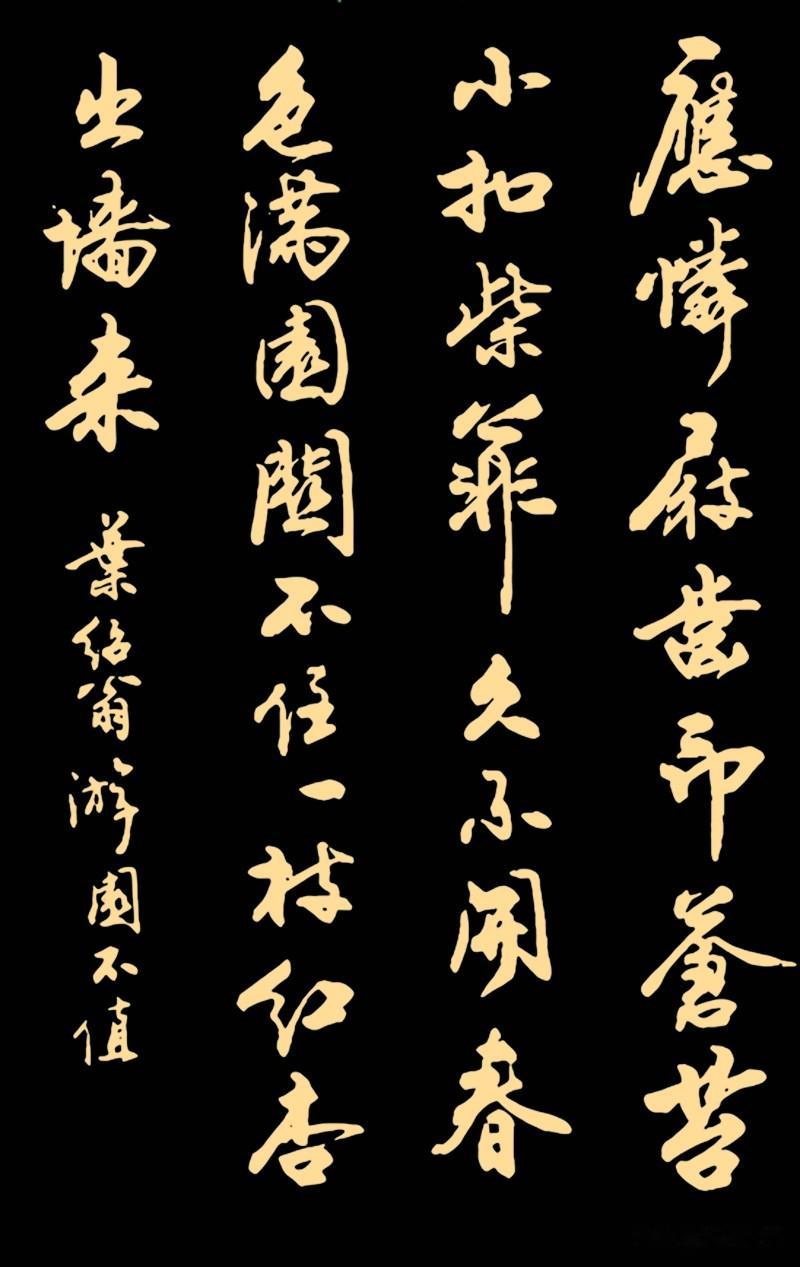 應憐屐齒印蒼苔
小扣柴扉久不開春
色滿園關不住一枝紅杏
出墻来 葉紹翁游園不值